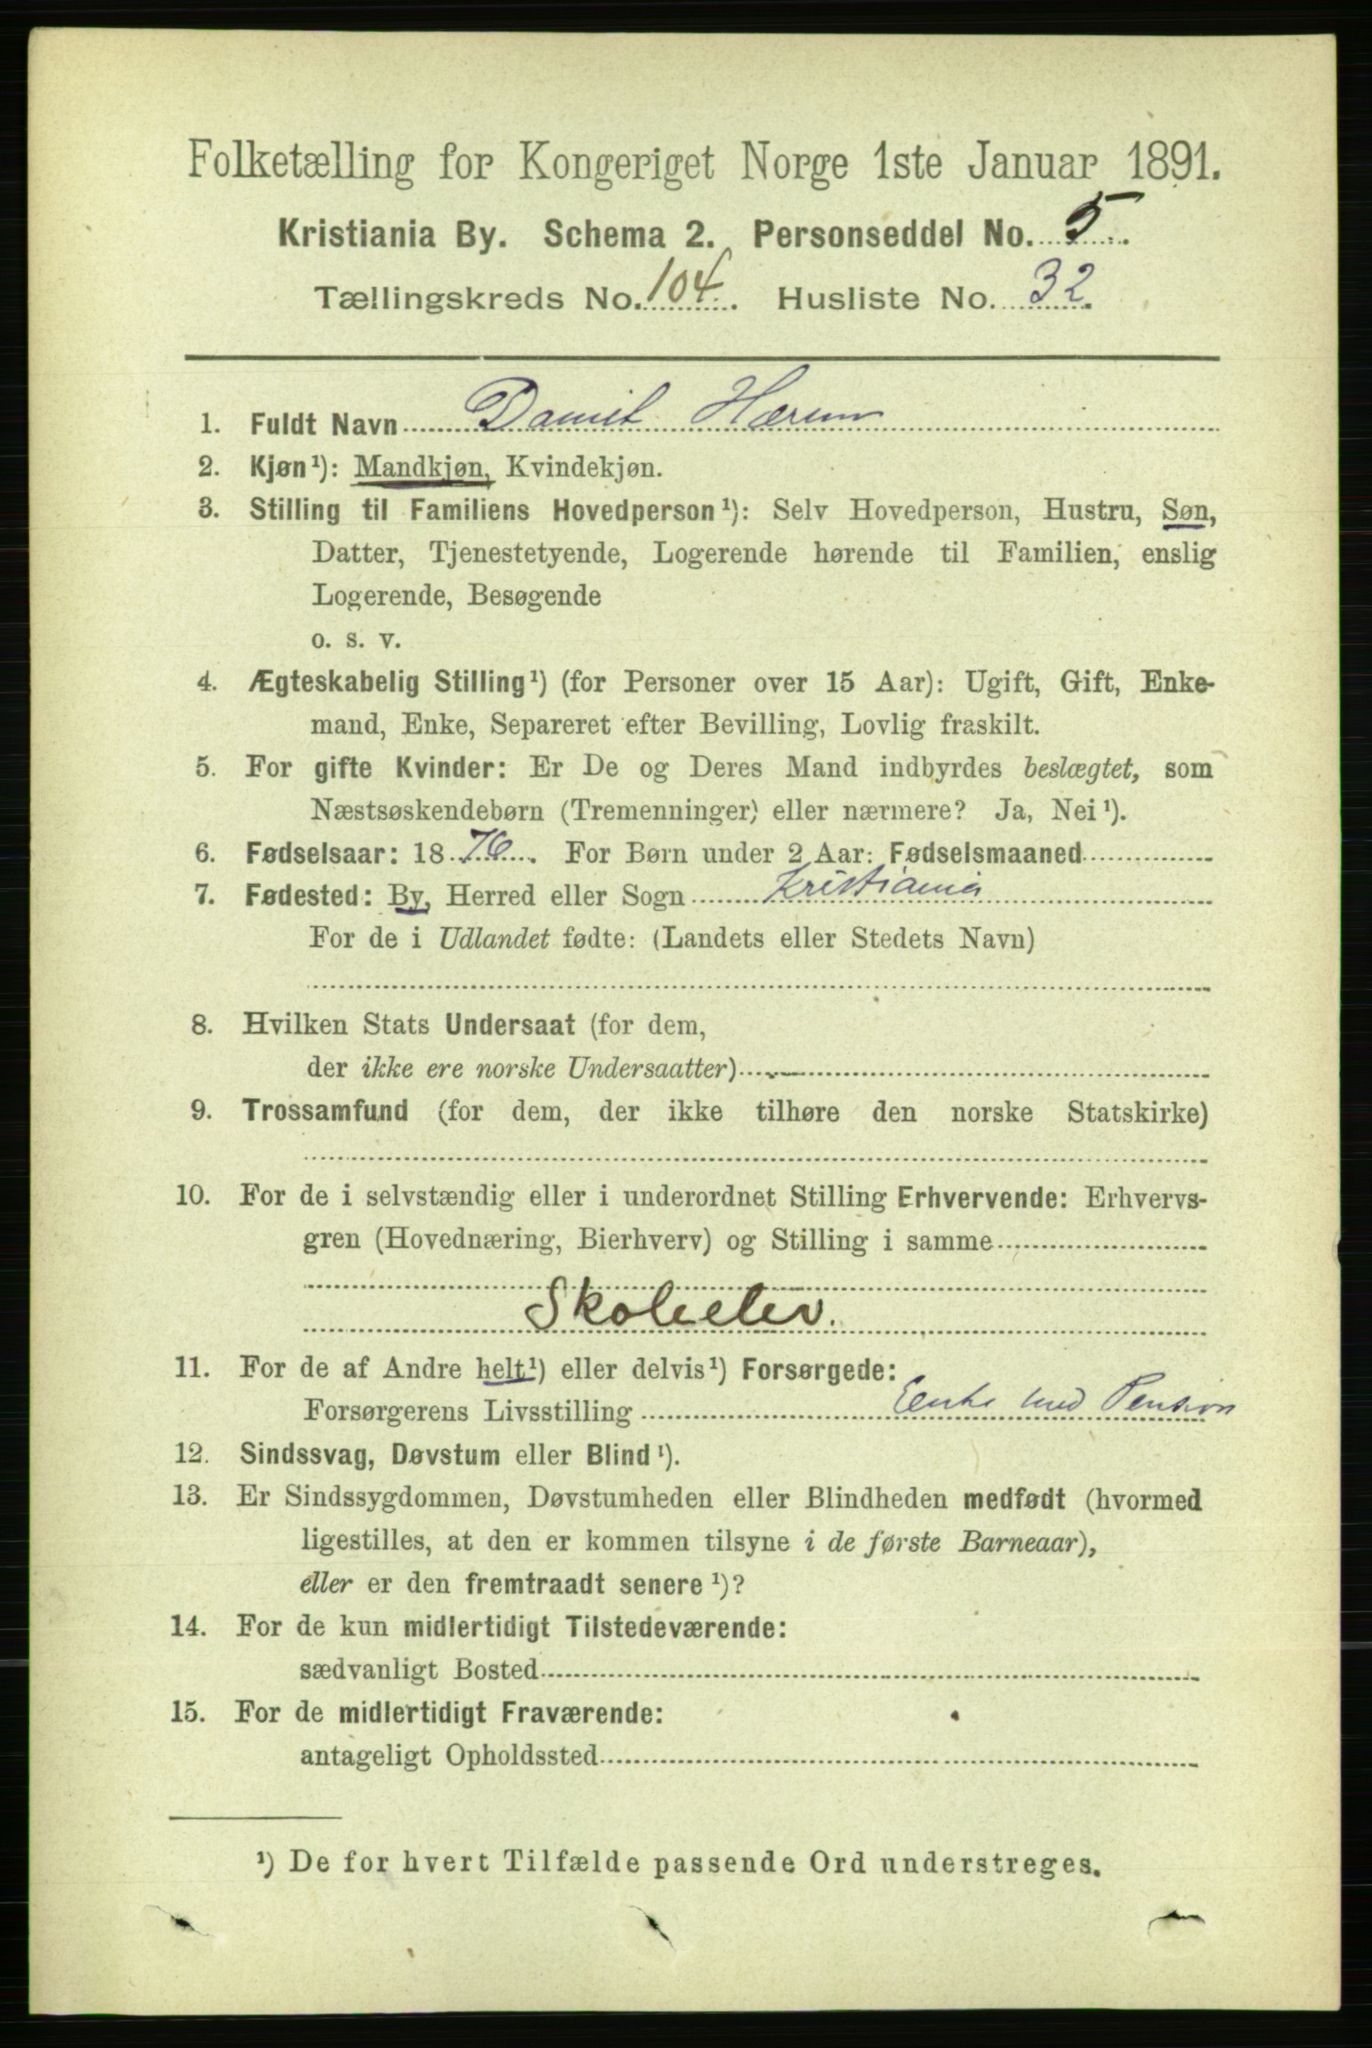 Folketælling for Kongeriget Norge 1ste Januar 1891.
Kristiania By. Schema 2. Personseddel No. 5.
Tællingskreds No. 104. Husliste No. 32.
1. Fuldt Navn Daniel Hærum
2. Kjøn¹): Mandkjøn, Kvindekjøn.
3. Stilling til Familiens Hovedperson¹): Selv Hovedperson, Hustru, Søn,
Datter, Tjenestetyende, Logerende hørende til Familien, enslig
Logerende, Besøgende
o. s. v.
4. Ægteskabelig Stilling¹) (for Personer over 15 Aar): Ugift, Gift, Enke-
mand, Enke, Separeret efter Bevilling, Lovlig fraskilt.
5. For gifte Kvinder: Er De og Deres Mand indbyrdes beslægtet, som
Næstsøskendebørn (Tremenninger) eller nærmere? Ja, Nei¹).
6. Fødselsaar: 1876. For Børn under 2 Aar: Fødselsmaaned
7. Fødested: By, Herred eller Sogn Kristiania
For de i Udlandet fødte: (Landets eller Stedets Navn)
8. Hvilken Stats Undersaat (for dem,
der ikke ere norske Undersaatter)
9. Trossamfund (for dem, der ikke tilhøre den norske Statskirke)
10. For de i selvstændig eller i underordnet Stilling Erhvervende: Erhvervs-
gren (Hovednæring, Bierhverv) og Stilling i samme
Skoleelev.
11. For de af Andre helt¹) eller delvis¹) Forsørgede:
Forsørgerens Livsstilling Enke med Pension
12. Sindssvag, Døvstum eller Blind¹).
13. Er Sindssygdommen, Døvstumheden eller Blindheden medfødt (hvormed
ligestilles, at den er kommen tilsyne i de første Barneaar),
eller er den fremtraadt senere¹)?
14. For de kun midlertidigt Tilstedeværende:
sædvanligt Bosted
15. For de midlertidigt Fraværende:
antageligt Opholdssted
¹) De for hvert Tilfælde passende Ord understreges.